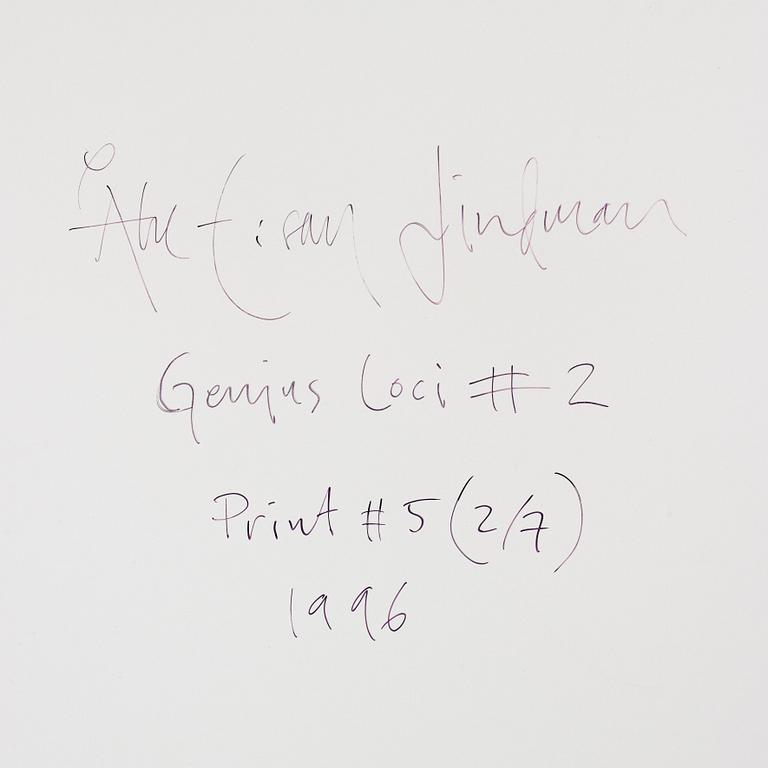 Åke E:son Lindman
Genius Loci # 2
Print # 5 (2/7)
1996